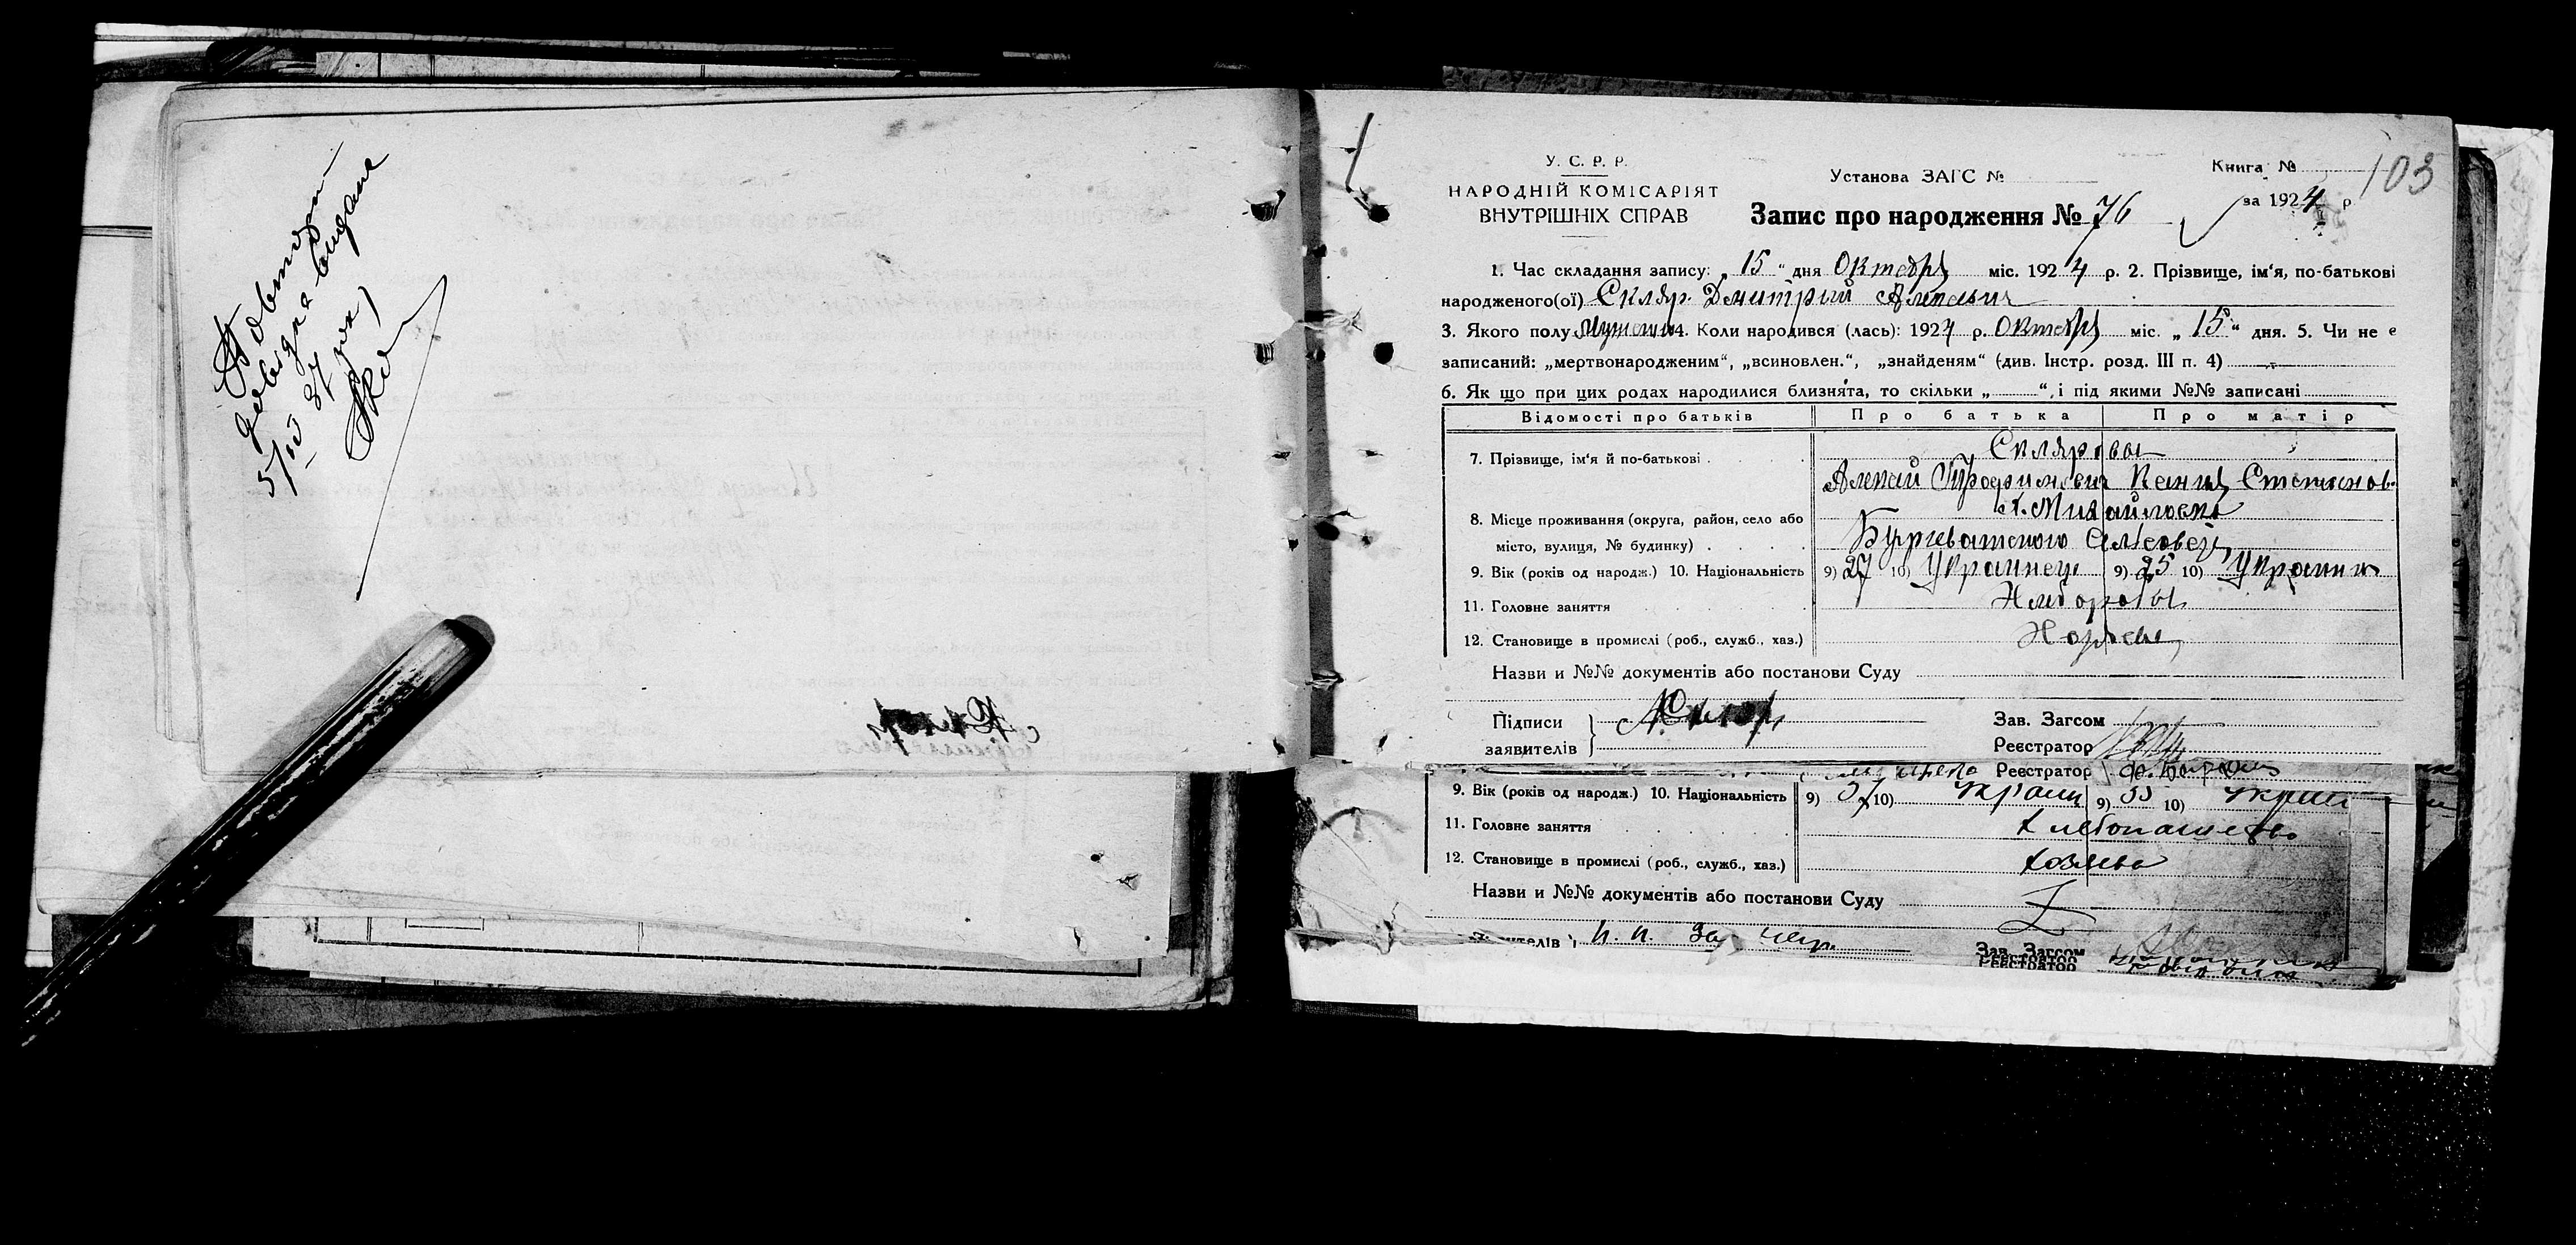 Повторн
довідка видана
5/IV 37 рок
У. С. Р. Р.
НАРОДНІЙ КОМІСАРІЯТ
ВНУТРІШНІХ СПРАВ
Установа ЗАГС №
Книга №
103
за 1924 р
Запис про народження № 76
1. Час складання запису: „ 15 “ дня Октября міс. 1924 р. 2. Прізвище, ім‘я, по-батькові
народженого(ої) Скляр Дмитрий Алексевич
3. Якого полу мужскии 4. Коли народився (лась): 1924 р. Октября міс. „ 15 “ дня. 5. Чи не є
записаний: „мертвонародженим“, „всиновлен.“, „знайденям“ (див. Інстр. розд. III п. 4)
6. Як що при цих родах народилися близнята, то скільки „ “, і під якими №№ записані
Відомості про батьків Про батька Про матір
7. Прізвище, ім‘я й по-батькові . Скляровы
Алексей Трофимович Ксения Степанов.
8. Місце проживання (округа, район, село або х. Михайловка
місто, вулиця, № будинку) . сельсовета
9. Вік (років од народж.) 10. Національність 9) 27 10) Украинец 9) 25 10) Украинк
11. Головне заняття Хлеборобы
12. Становище в промислі (роб., служб., хаз.) Хозяева
Назви и №№ документів або постанови Суду
Підписи
заявителів
А. Скляр
Зав. Загсом
Реєстратор
Реєстратор
9. Вік (років од народж.) 10. Національність 9) 37 10) Украин 9) 33 10) Украин
11. Головне заняття Хлебопашество
12. Становище в промислі (роб., служб., хаз.) хозяева
Назви и №№ документів або постанови Суду
Зав. Загсом
Реєстратор